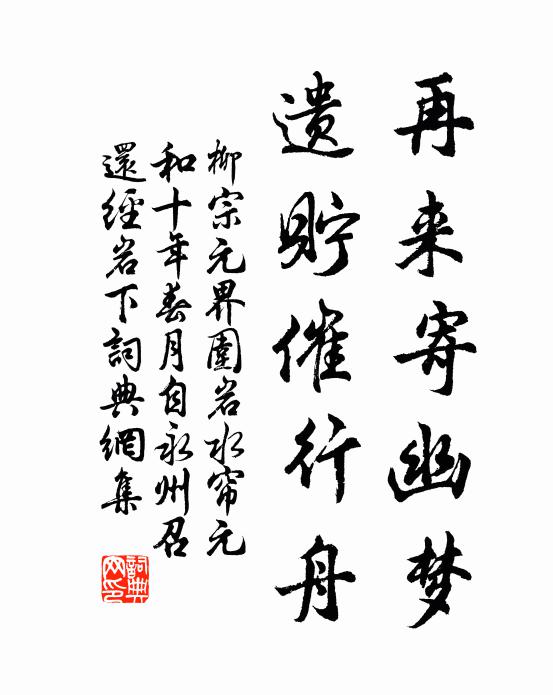 再来寄幽梦
遗贮催行舟
柳宗元界圍岩水帘元
和十年春月自永州召
還經岩下詞典網集
詞典网印